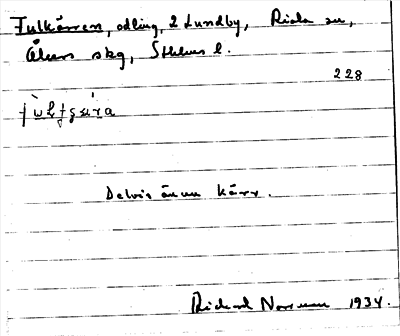 Fulkärren, odling, 2 Lundby, Rida sn,
Åkers skg, Sthlms l.
228
Delvis ännu kärr.
Rickard Norrman 1934.